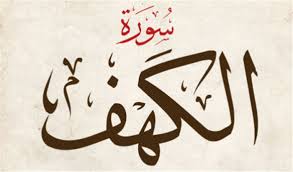 سُورَة
الكَهْف